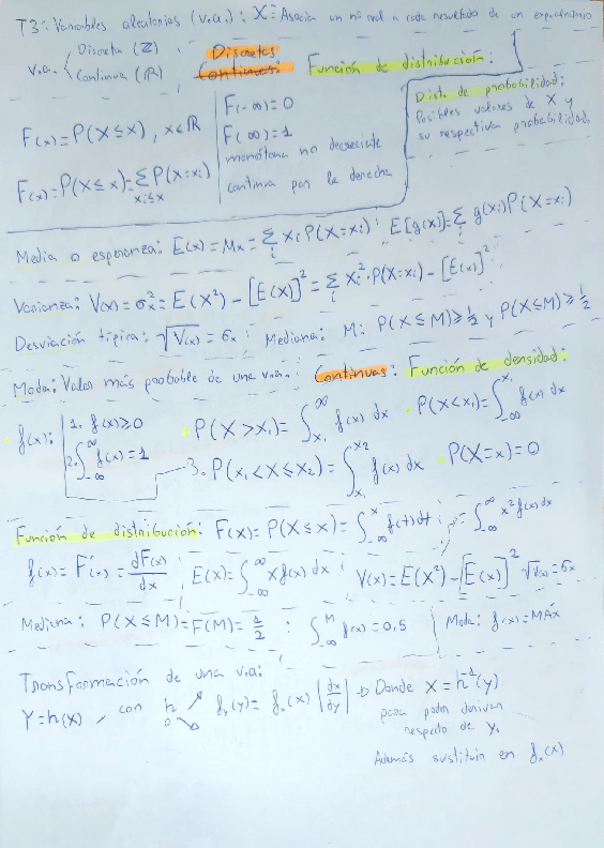 T3: Variables aleatorias (v.a.): X ≡ Asocia un nº real a cada resultado de un experimento
v.a. < Discreta (ℤ)
Continua (ℝ)
Discretas
Continuas:
Función de distribución:
F(x)=P(X≤x), x∈ℝ
F(x)=P(X≤x)=∑_{xi≤x} P(X=xi)
F(-∞)=0
F(∞)=1
monótona no decreciente
continua por la derecha
Dist. de probabilidad:
Posibles valores de X y
su respectiva probabilidad.
Media o esperanza: E(x)=Mx=∑_i xi P(X=xi) ; E[g(x)]=∑_i g(xi)P(X=xi)
Varianza: V(x)=σx²=E(X²)-[E(X)]²=∑_i xi²·P(X=xi)-[E(x)]²
Desviación típica: √V(x) = σx ; Mediana: M: P(X≤M)≥1/2 y P(X≤M)≥1/2
Moda: Valor más probable de una v.a. Continuas: Función de densidad:
f(x): 1. f(x)≥0
2. ∫_{-∞}^{∞} f(x)=1
· P(X>x₁)=∫_{x₁}^{∞} f(x) dx · P(X<x₁)=∫_{-∞}^{x₁} f(x) dx
3. P(x₁<X≤x₂)=∫_{x₁}^{x₂} f(x) dx · P(X=x)=0
Función de distribución: F(x)=P(X≤x)=∫_{-∞}^{x} f(t)dt ; =∫_{-∞}^{∞} x²f(x)dx
f(x)=F'(x)=dF(x)/dx ; E(x)=∫_{-∞}^{∞} x f(x) dx ; V(x)=E(X²)-[E(x)]² √V(x)=σx
Mediana: P(X≤M)=F(M)=1/2 ; ∫_{-∞}^{M} f(x)=0,5 Moda: f(x)=MÁX
Transformación de una v.a:
Y=h(X), con h ↗ o ↘ f_y(y)=f_x(x)|dx/dy| → Donde X=h⁻¹(y)
para poder derivar
respecto de y.
Además sustituir en f_x(x)